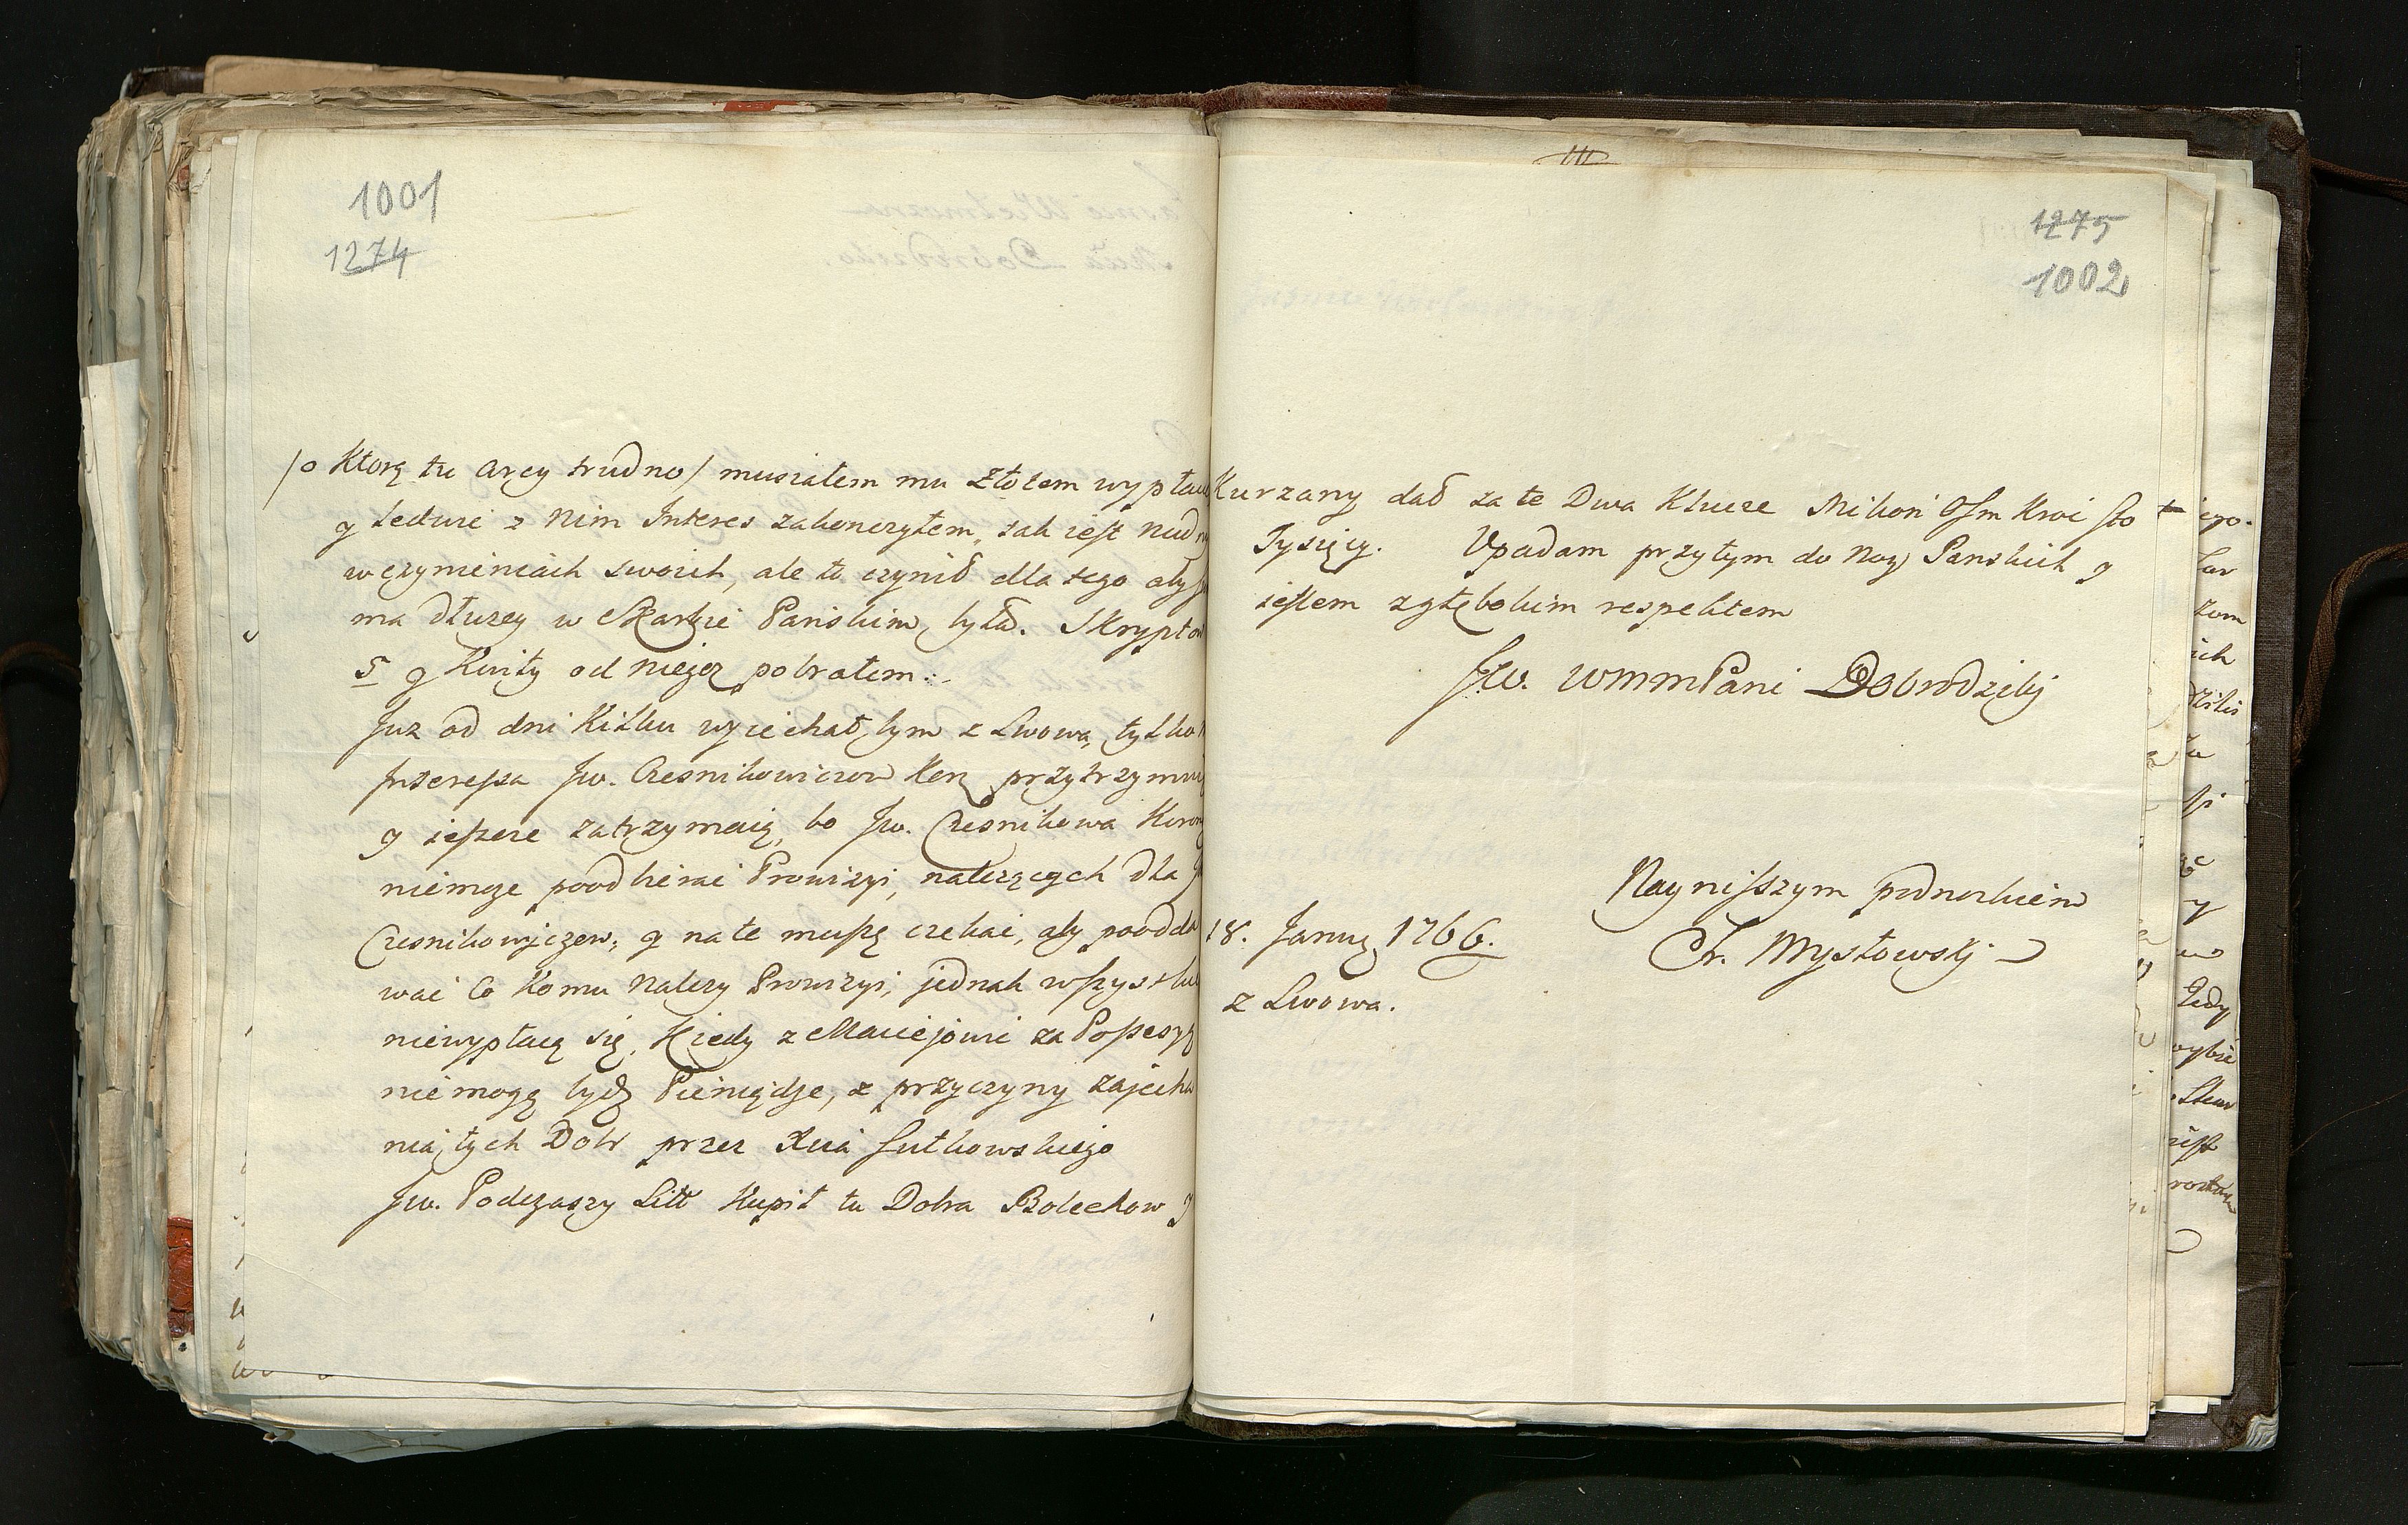 1001
1274
/o Ktorą tu arcy trudno/ musiałem mu złotem wypła
y ledwie z nim Interes zakonczyłem, tak iest nud
w czynieniach swoich, ale to czynił dla tego aby
ma dłuzey w Skarbie Panskim była. Skrypto
5 y Kwity od niego pobrałem.
Juz od dni Kilku wyiechał bym z Lwowa, tylko
Interessa Jw. Czesnikowiczow Kor przytrzymu
y ieszcze zatrzymaią, bo Jw. Czesnikowa Koron
niemoze poodbierac Prowizyi, nalezących dla
Czesnikowiczow, y na te muszę czekac, aby poodda
wac Co Komu nalezy Prowizyi, jednak wszystk
niewypłacą się, Kiedy z Maciejowi za
niemogą bydz Pieniądze, z przyczyny zajecha
nia tych Dobr przez Xcia Sułkowskiego
Jw. Podczaszy Litt Kupił tu Dobra Bolechow y
1275
1002
Kurzany dał za te Dwa Klucze Milion Osm Kroc sto
Tysięcy. Upadam przytym do Nog Panskich y
iestem z głębokim respektem
Jw. WMMPani Dobrodziki
Nayniższym podnozkiem
18. Janua 1766.
Mysłowskj
z Lwowa.